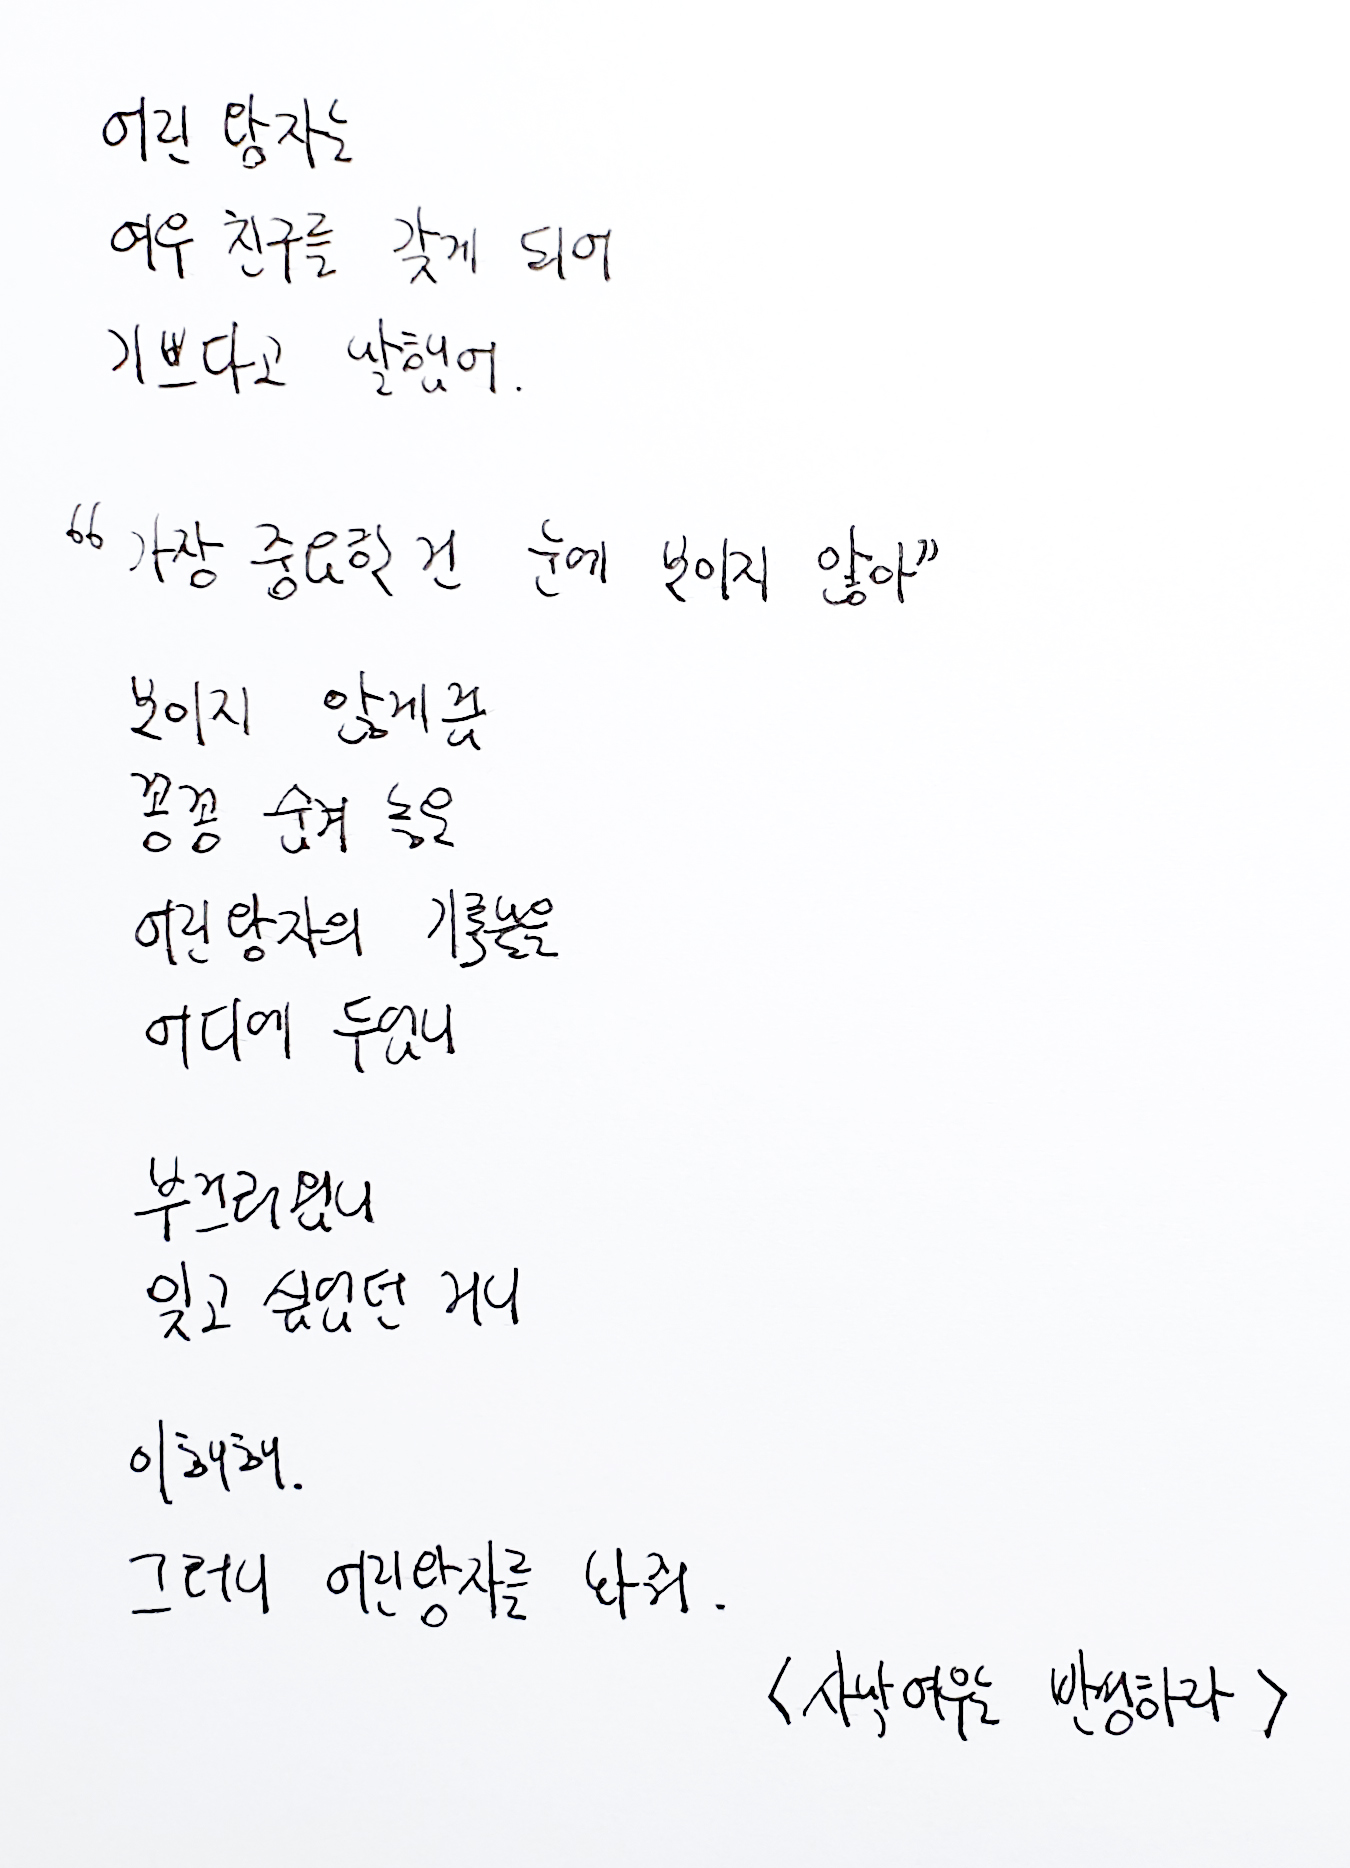 어린 왕자는
여우 친구를 갖게 되어
기쁘다고 말했어.
“가장 중요한 건 눈에 보이지 않아”
보이지 않게끔
꽁꽁 숨겨 놓은
어린왕자의 기록들을
어디에 두었니
부끄러웠니
잊고 싶었던 거니
이해해.
그러니 어린왕자를 놔줘.
<사막여우는 반성하라>